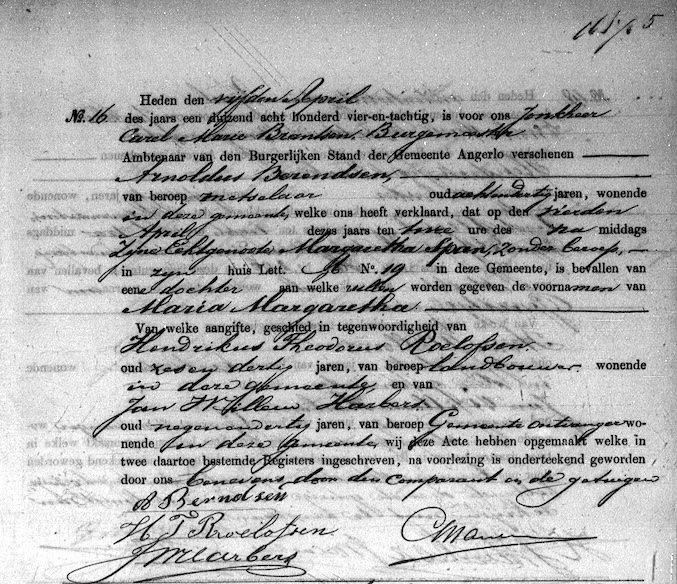 Heden den vijfden April
No. 16 des jaars een duizend acht honderd vier-en-tachtig, is voor ons Jonkheer
Carel Marie Brantsen, Burgemeester
Ambtenaar van den Burgerlijken Stand der Gemeente Angerlo verschenen
Arnoldus Berendsen,
van beroep metselaar oud achtendertig jaren, wonende
in deze gemeente, welke ons heeft verklaard, dat op den vierden
April dezes jaars ten twee ure des na middags
Zijne Echtgenoote Margaretha Span, zonder beroep,
in zijn huis Lett. No. 19 in deze Gemeente, is bevallen van
eene dochter aan welke zullen worden gegeven de voornamen van
Maria Margaretha.
Van welke aangifte, geschied in tegenwoordigheid van
Hendrikus Theodorus Roelofsen.
oud zesendertig jaren, van beroep landbouwer wonende
in deze gemeente, en van
Jan Willem Harbers
oud negenendertig jaren, van beroep Gemeente ontvanger wo-
nende in deze gemeente, wij deze Acte hebben opgemaakt welke in
twee daartoe bestemde Registers ingeschreven, na voorlezing is onderteekend geworden
door ons benevens door den comparant en de getuigen
A Berndsen
H T Roelofsen
JWHarbers